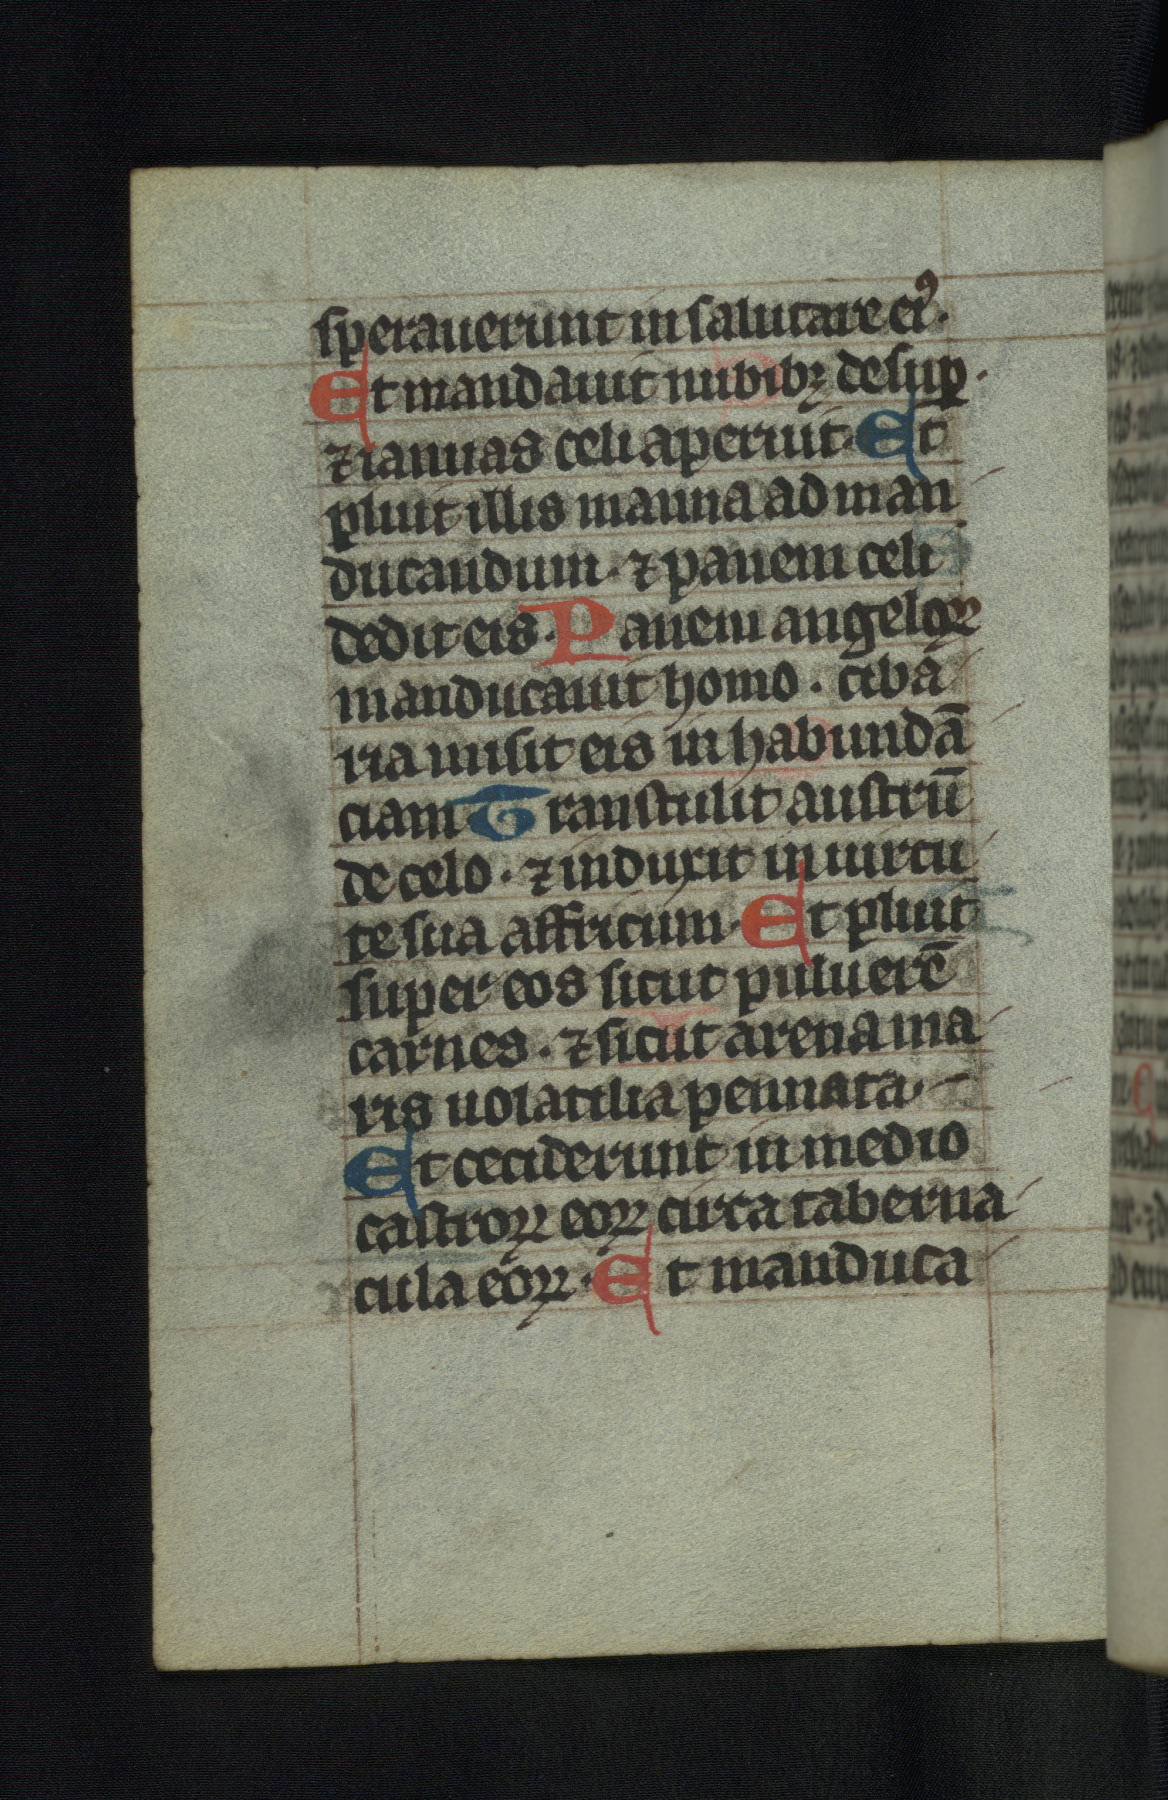 sperauerunt in salutare eiꝰ.
Et mandauit nubibꝫ desuꝑ.
⁊ ianuas celi aperuit. Et
pluit illis manna ad man
ducandum. ⁊ panem celi
dedit eis. Panem angeloꝝ
manducauit homo. ciba
ria misit eis in habundā
ciam Transtulit austrū
de celo. ⁊ induxit in uirtu
te sua affricum. Et pluit
super eos sicut puluerē
carnes. ⁊ sicut arena ma
ris uolatilia pennata.
Et ceciderunt in medio
castroꝝ eoꝝ circa taberna
cula eoꝝ. Et manduca